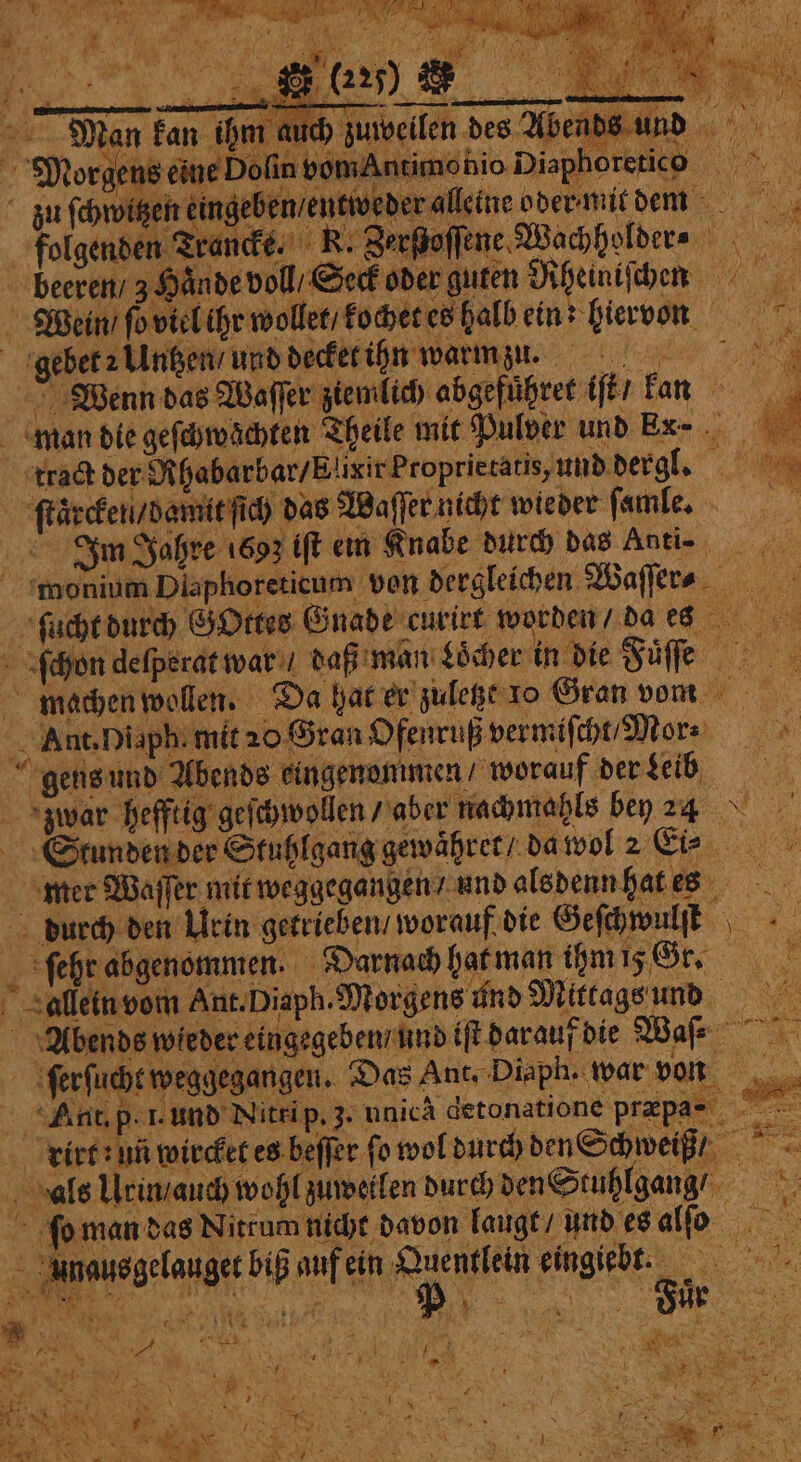 (225)
Man kan ihm auch zuweilen des Abends und
Morgens eine Dosin vom Antimonio Diaphoretico
zu ſchwitzen eingeben/entweder alleine oder mit dem
folgenden Trancke. R. Zerſtoſſene Wachholder⸗
beeren/ 3 Haͤnde voll/ Seck oder guten Rheiniſchen
Wein/ ſo viel ihr wollet/ kochet es halb ein: hiervon
gebet 2 Untzen/ und decket ihn warm zu.
Wenn das Waſſer ziemlich abgefuͤhret iſt/ kan
man die geſchwaͤchten Theile mit Pulver und Ex-
tract der Rhabarbar/Elixir Proprietatis, und dergl.
ſtaͤrcken/damit ſich das Waſſer nicht wieder ſamle.
Im Jahre 1693 iſt ein Knabe durch das Anti-
monium Diaphoreticum von dergleichen Waſſer⸗
ſucht durch GOttes Gnade curirt worden / da es
ſchon deſperat war / daß man Loͤcher in die Fuͤſſe
machen wollen. Da hat er zuletzt 10 Gran vom
Ant. Diaph. mit 20 Gran Ofenruß vermiſcht/Mor⸗
gens und Abends eingenommen / worauf der Leib
zwar hefftig geſchwollen / aber nachmahls bey 24
Stunden der Stuhlgang gewaͤhret/ da wol 2 Ei⸗
mer Waſſer mit weggegangen/ und alsdenn hat es
durch den Urin getrieben/ worauf die Geſchwulſt
ſehr abgenommen. Darnach hat man ihm 15 Gr.
allein vom Ant. Diaph. Morgens und Mittags und
Abends wieder eingegeben/ und iſt darauf die Waſ⸗
ſerſucht weggegangen. Das Ant. Diaph. war von
Ant. p. 1. und Nitri p. 3. unicâ detonatione præpa⸗
rirt: uñ wircket es beſſer ſo wol durch den Schweiß/
als Urin/auch wohl zuweilen durch den Stuhlgang/
ſo man das Nitrum nicht davon laugt/ und es alſo
unausgelauget biß auf ein Quentlein eingiebt.
P Fuͤr